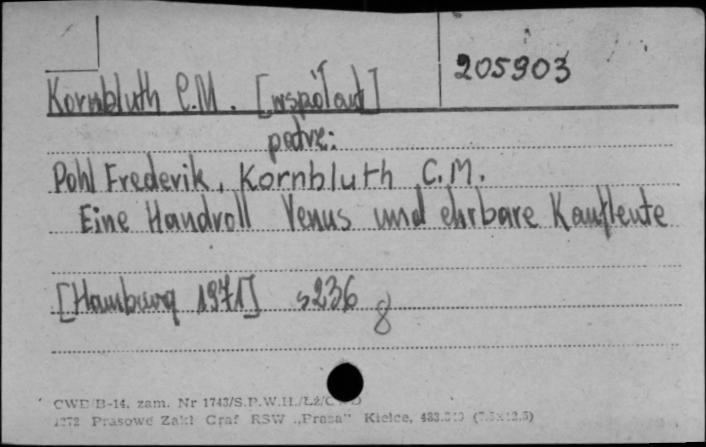 205903
Kornbluth C.M. [współaut]
patrz:
Pohl Frederik, Kornbluth C.M.
Eine Handvoll Venus und ehrbare Kaufleute
[Hamburg 1971] s 236
8
CWD/B-14, zam. Nr 1743/S.P.W.H./Łż/
Prasowe Zakł Graf RSW „Prasa” Kielce,